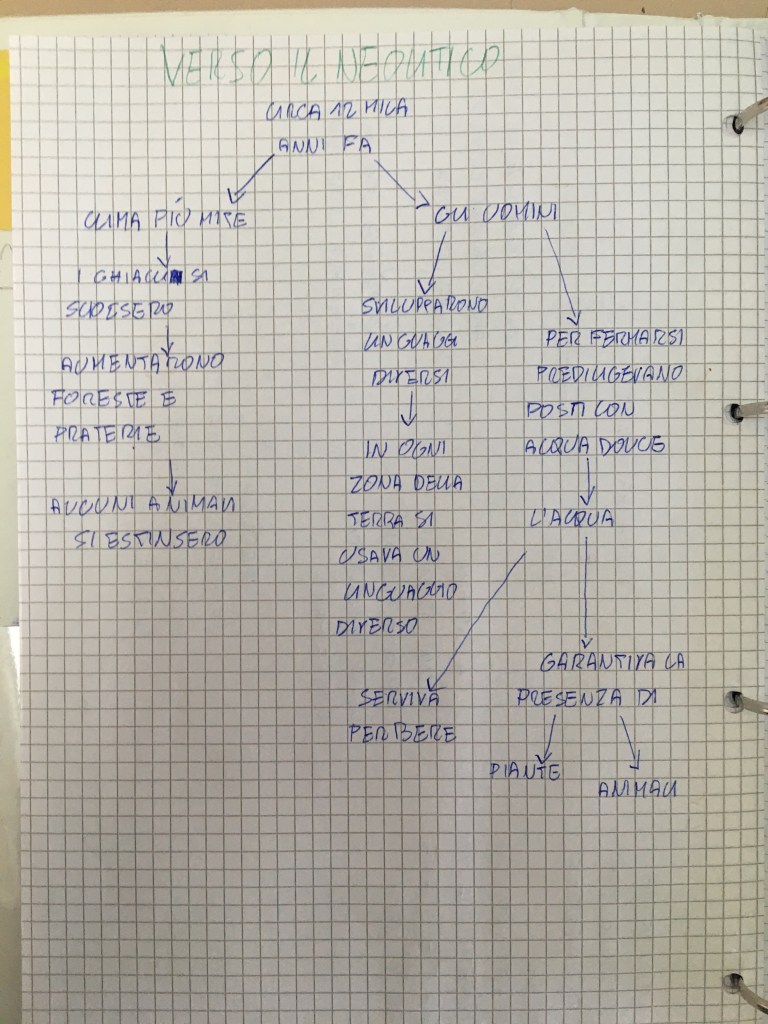 VERSO IL NEOLITICO
CIRCA 12 MILA
ANNI FA
CLIMA PIÚ MITE
I GHIACCI SI
SCIOLSERO
AUMENTARONO
FORESTE E
PRATERIE
ALCUNI ANIMALI
SI ESTINSERO
GLI UOMINI
SVILUPPARONO
LINGUAGGI
DIVERSI
IN OGNI
ZONA DELLA
TERRA SI
USAVA UN
LINGUAGGIO
DIVERSO
PER FERMARSI
PREDILIGEVANO
POSTI CON
ACQUA DOLCE
L'ACQUA
SERVIVA
PER BERE
GARANTIVA LA
PRESENZA DI
PIANTE
ANIMALI